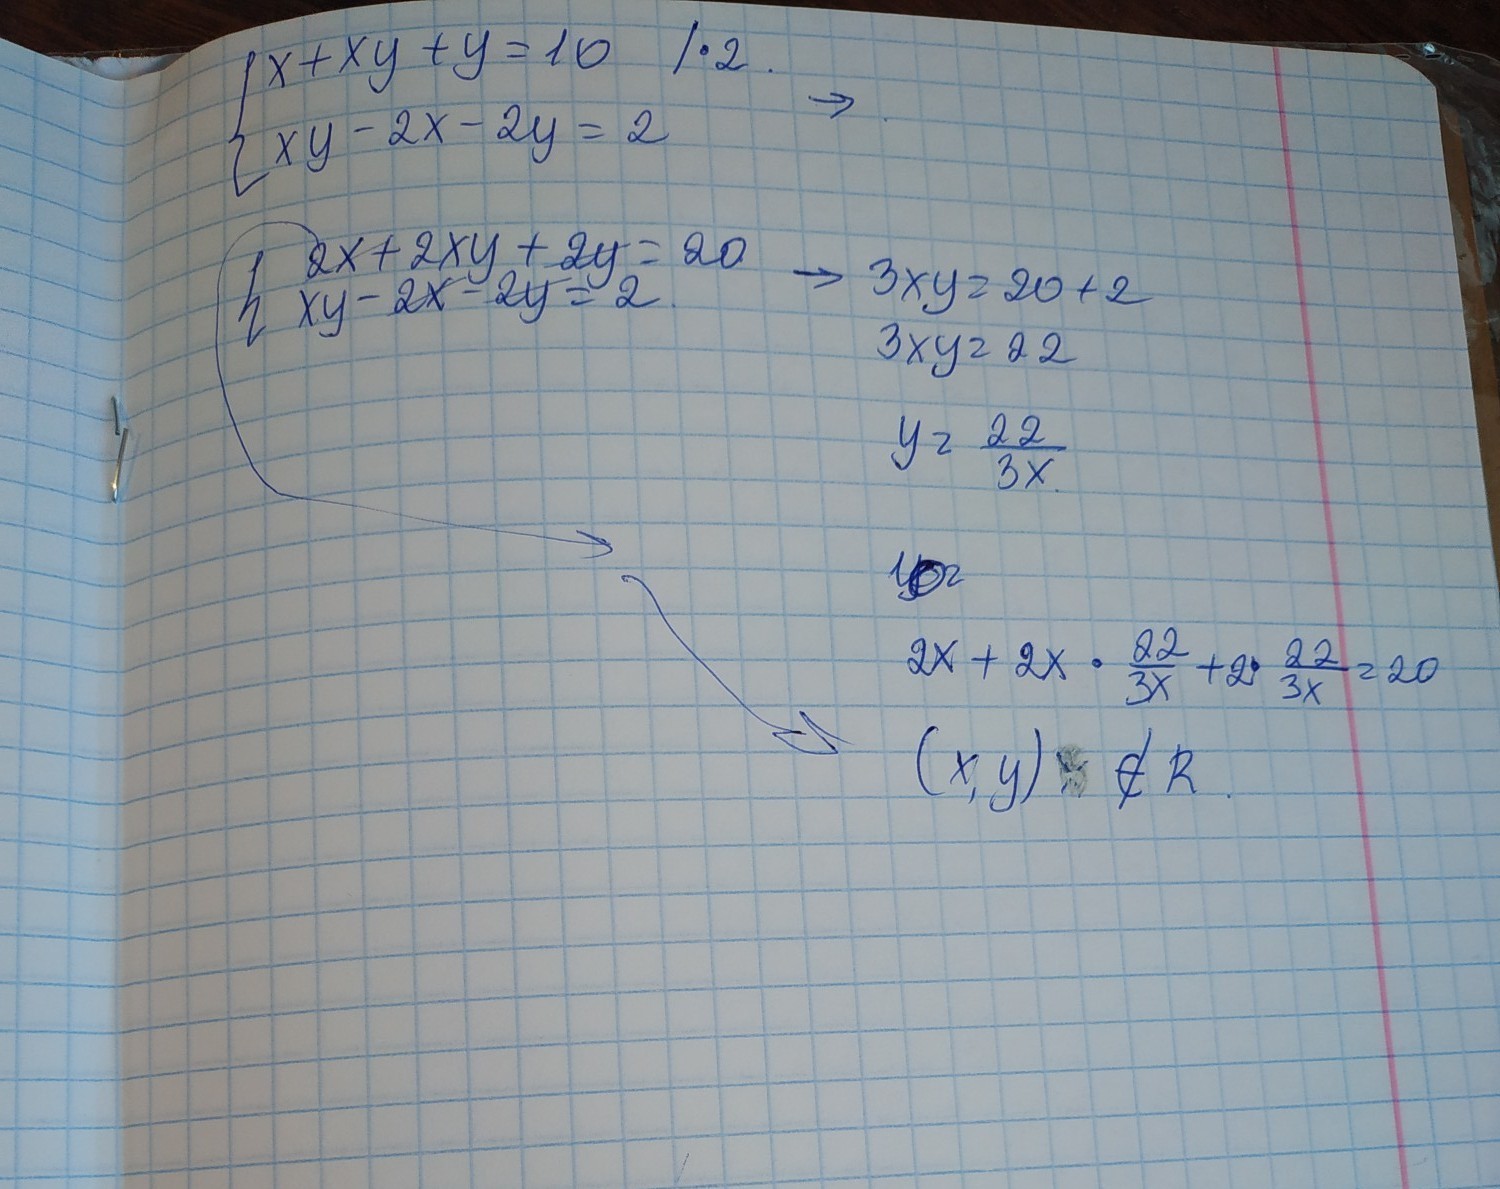 x + xy + y = 10 /·2.
xy - 2x - 2y = 2 →
2x + 2xy + 2y = 20
xy - 2x - 2y = 2.
→ 3xy = 20 + 2
3xy = 22
y = 22/3x.
2x + 2x · 22/3x + 2· 22/3x = 20
(x, y) ∉ R.